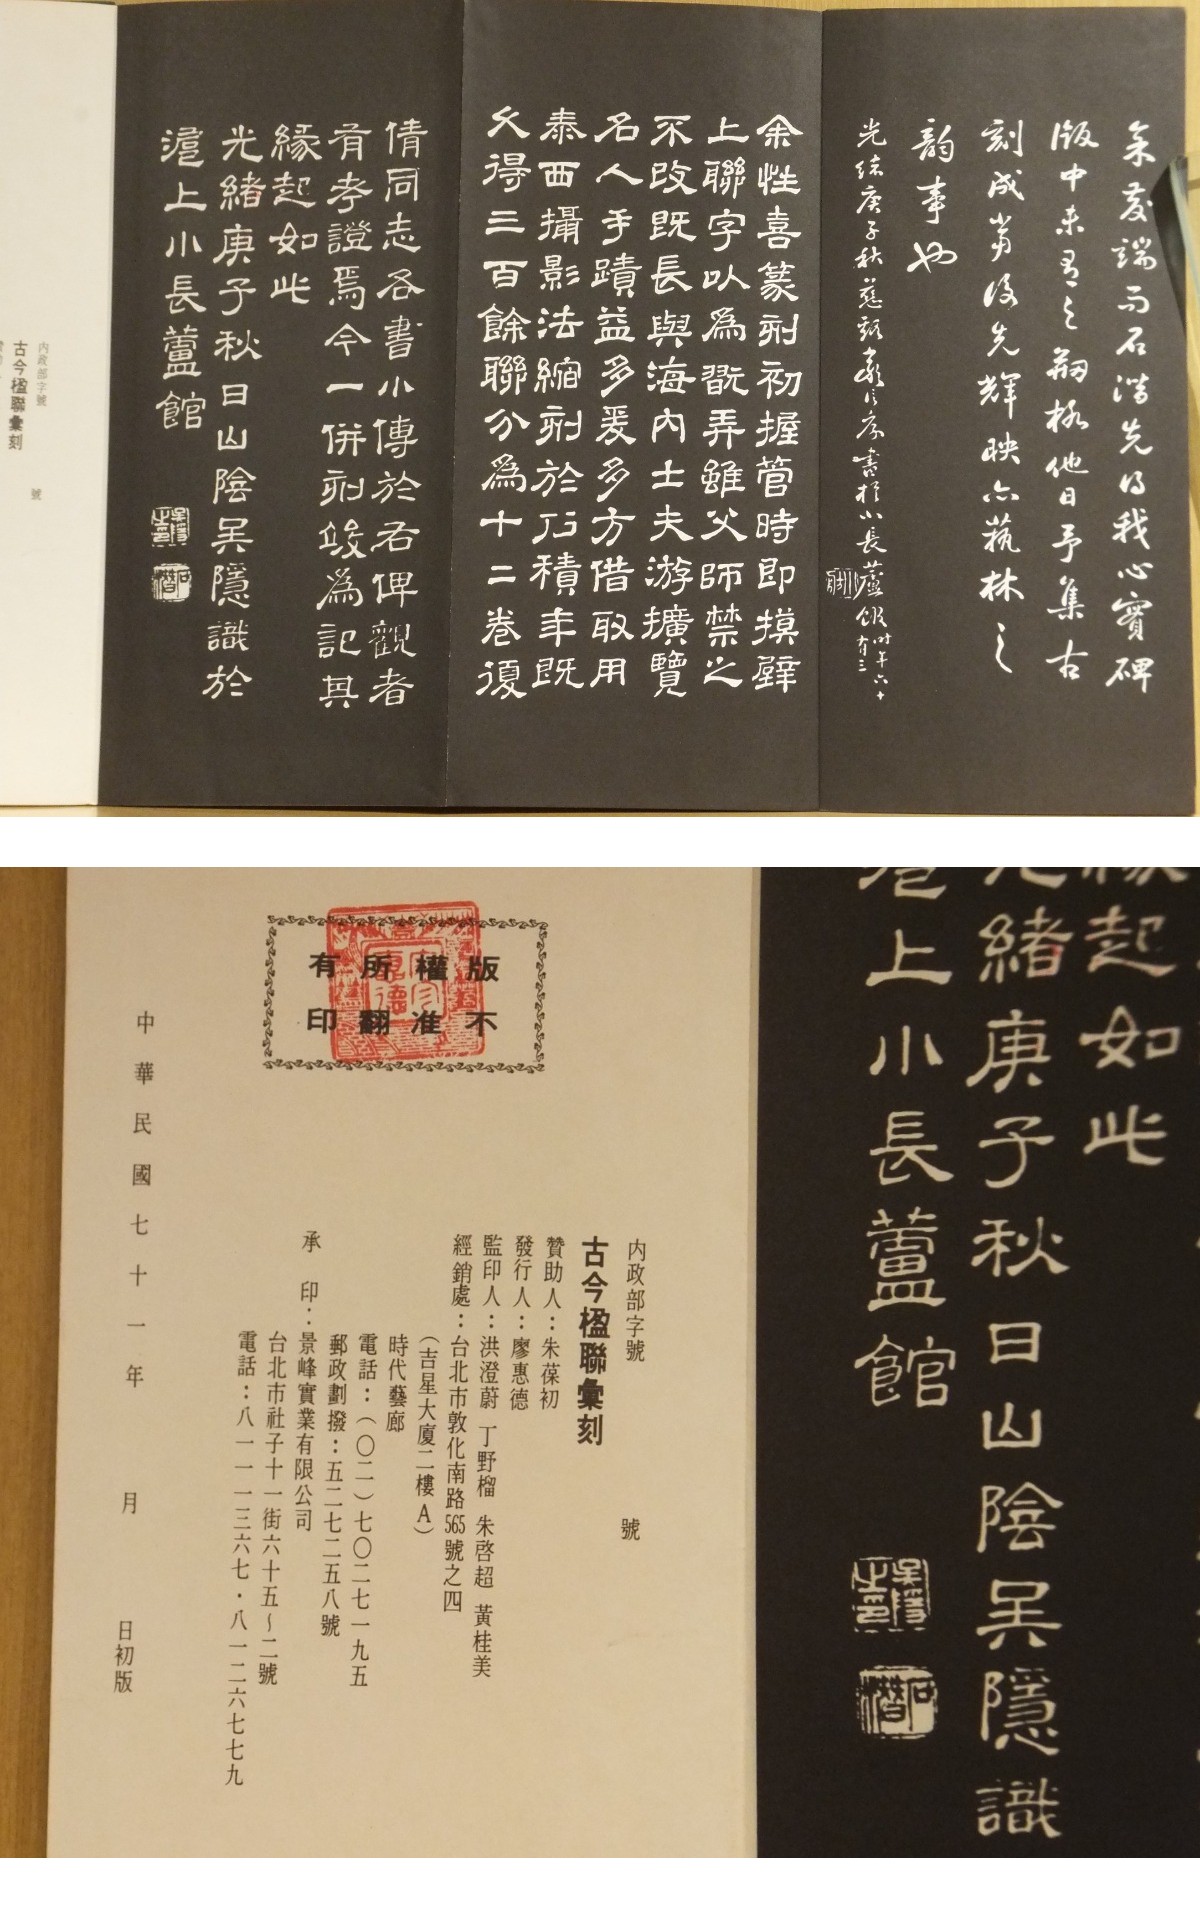 余
端而石潛先得我心實碑
版中未有之翱格他日予集古
刻成當後先輝映亦萟林之
韵事也
光緒庚子秋
書於小長蘆館時年六十
有三
余性喜篆刻初握管時即摸壁
上聯字以為戲弄雖父師禁之
不改既長與海內士夫游擴覽
名人手蹟益多爰多方借取用
泰西攝影法縮刻於石積年既
久得三百餘聯分為十二卷復
倩同志各書小傳於右俾觀者
有考證焉今一併刻竣為記其
緣起如此
光緒庚子秋日山陰吳隱識於
滬上小長蘆館
吳隱之印
石潛
內政部字號
號
古今楹聯彙刻
緣起如此
光緒庚子秋日山陰吳隱識
滬上小長蘆館
吳隱之印
石潛
版權所有
不准翻印
內政部字號
號
古今楹聯彙刻
贊助人：朱葆初
發行人：廖惠德
監印人：洪澄蔚 丁野榴 朱啓超 黃桂美
經銷處：台北市敦化南路565號之四
（吉星大廈二樓A）
時代藝廊
電話：（〇二）七〇二七一九五
郵政劃撥：五二七二五八號
承印：景峰實業有限公司
台北市社子十一街六十五～二號
電話：八一一一三六七・八一二六七七九
中華民國七十一年 月 日初版